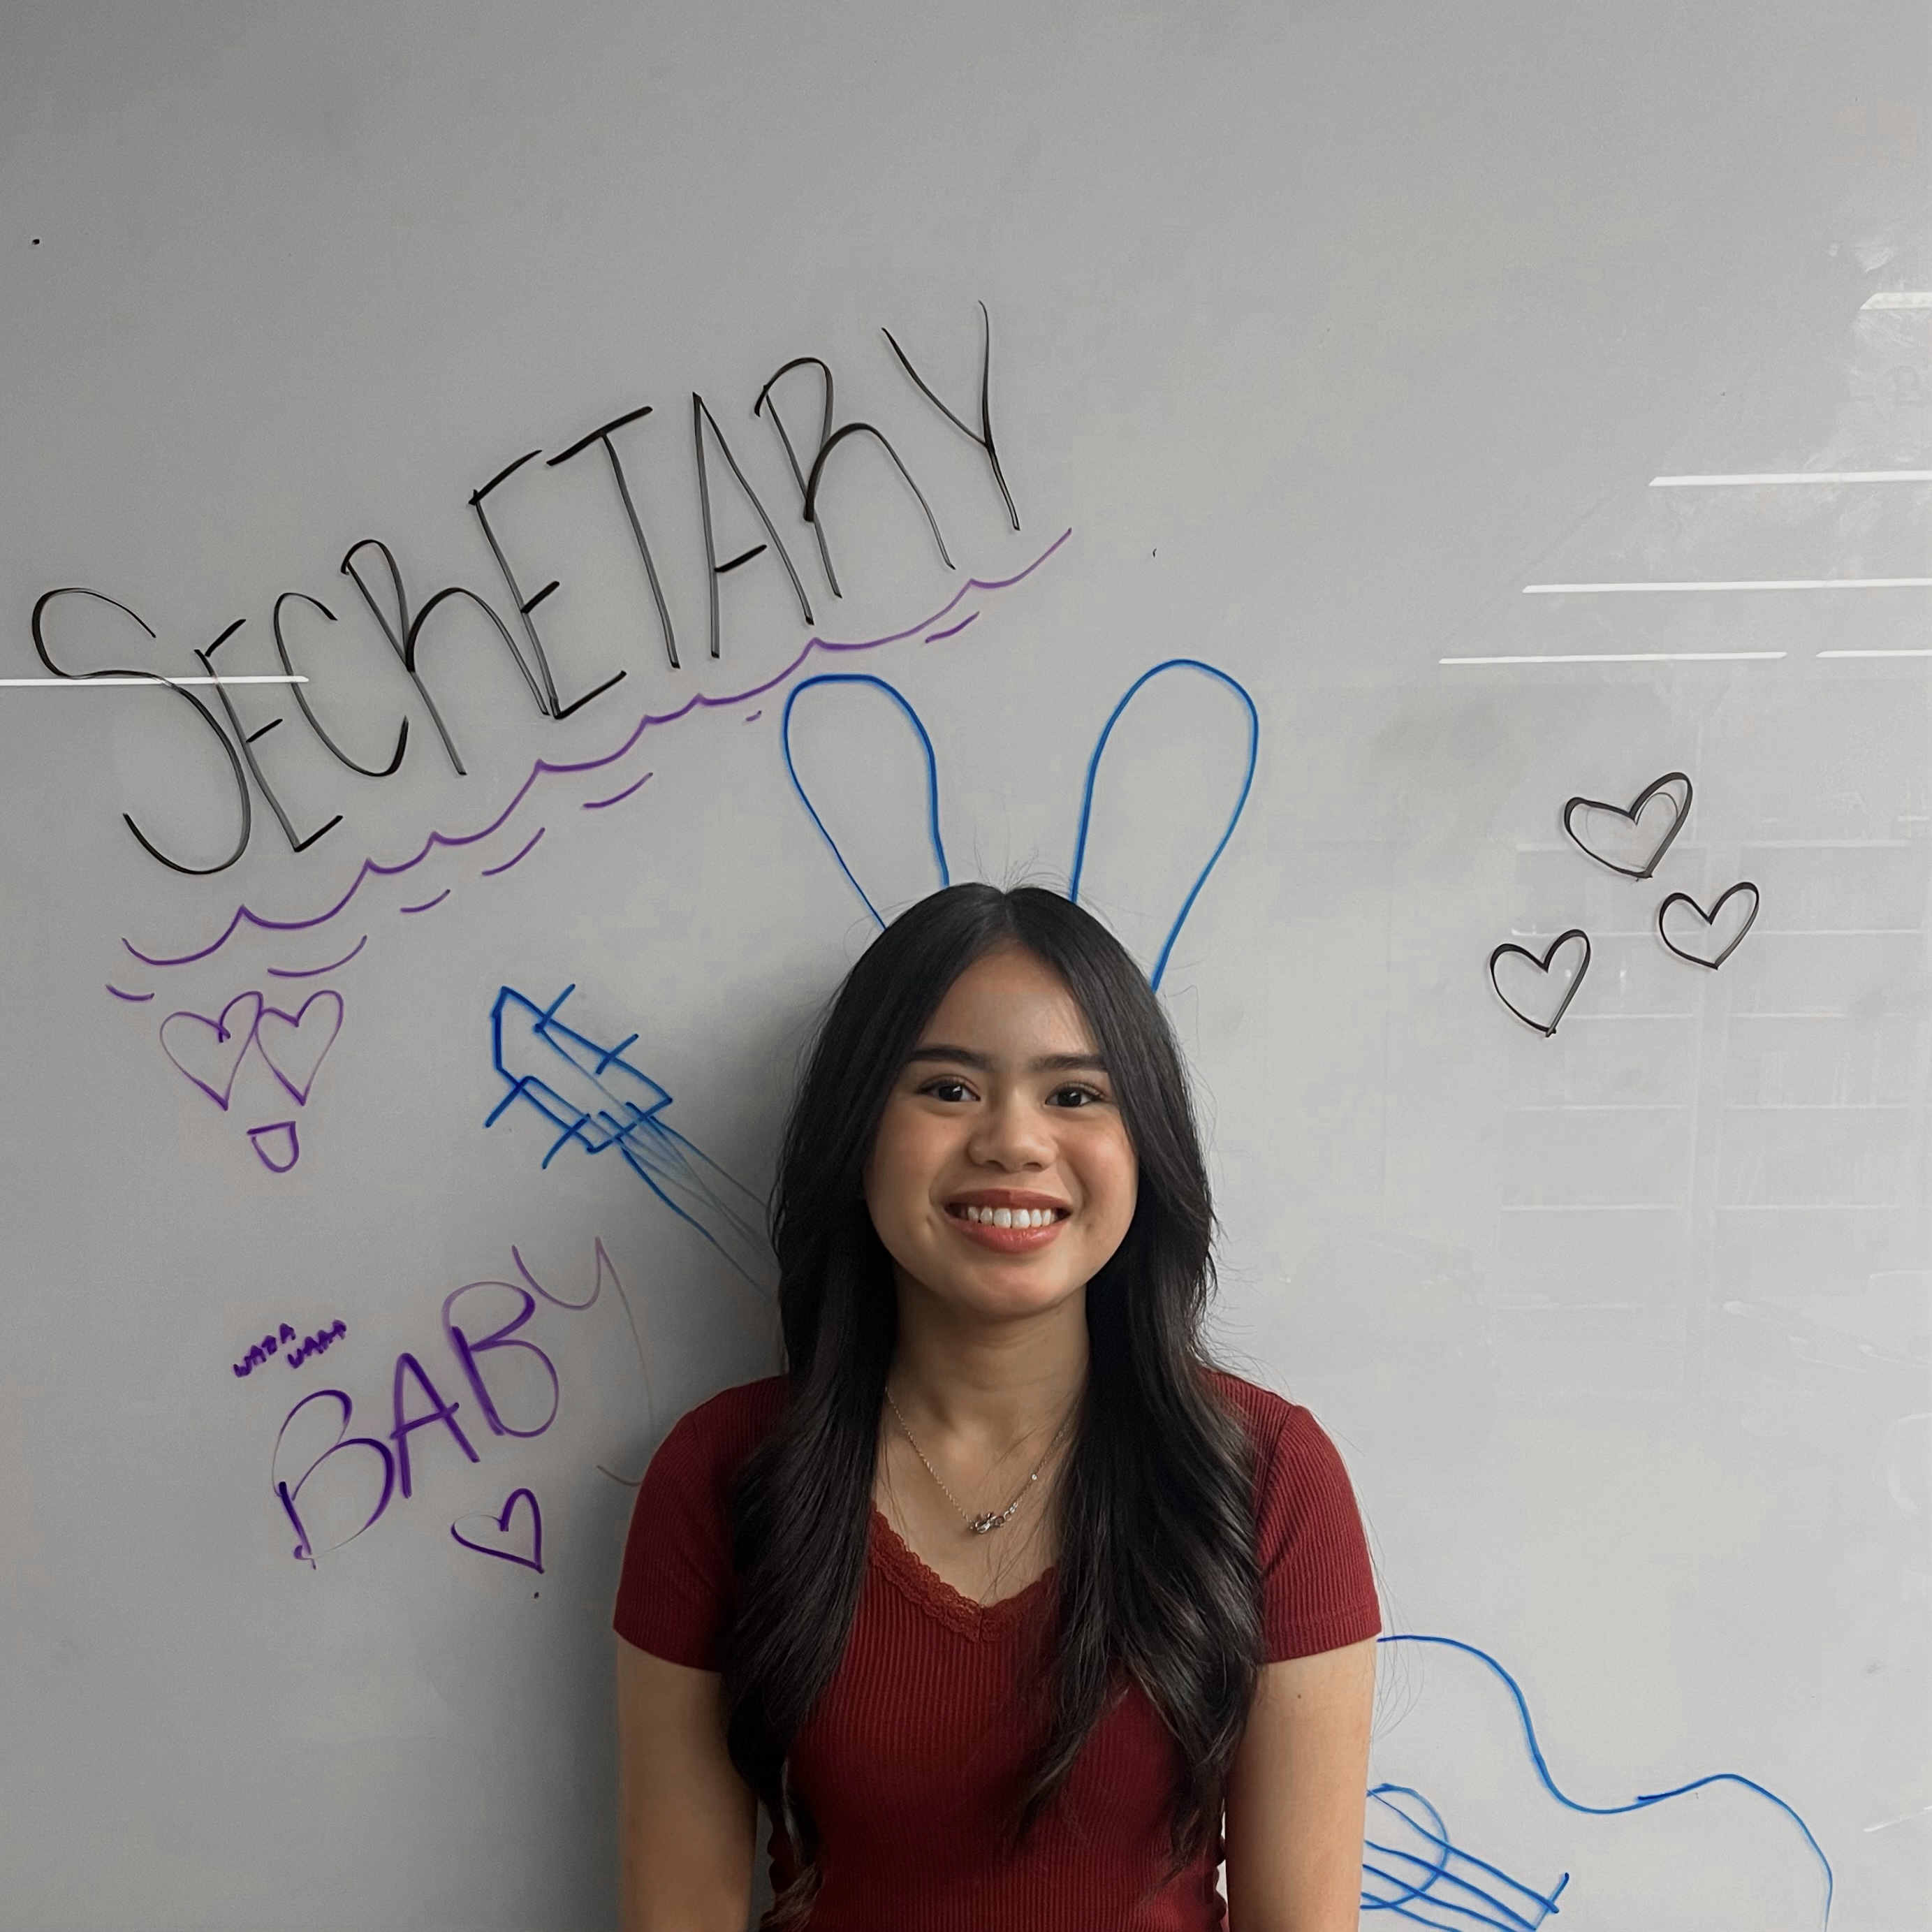 SECRETARY
WAAA
WAAA
BABY